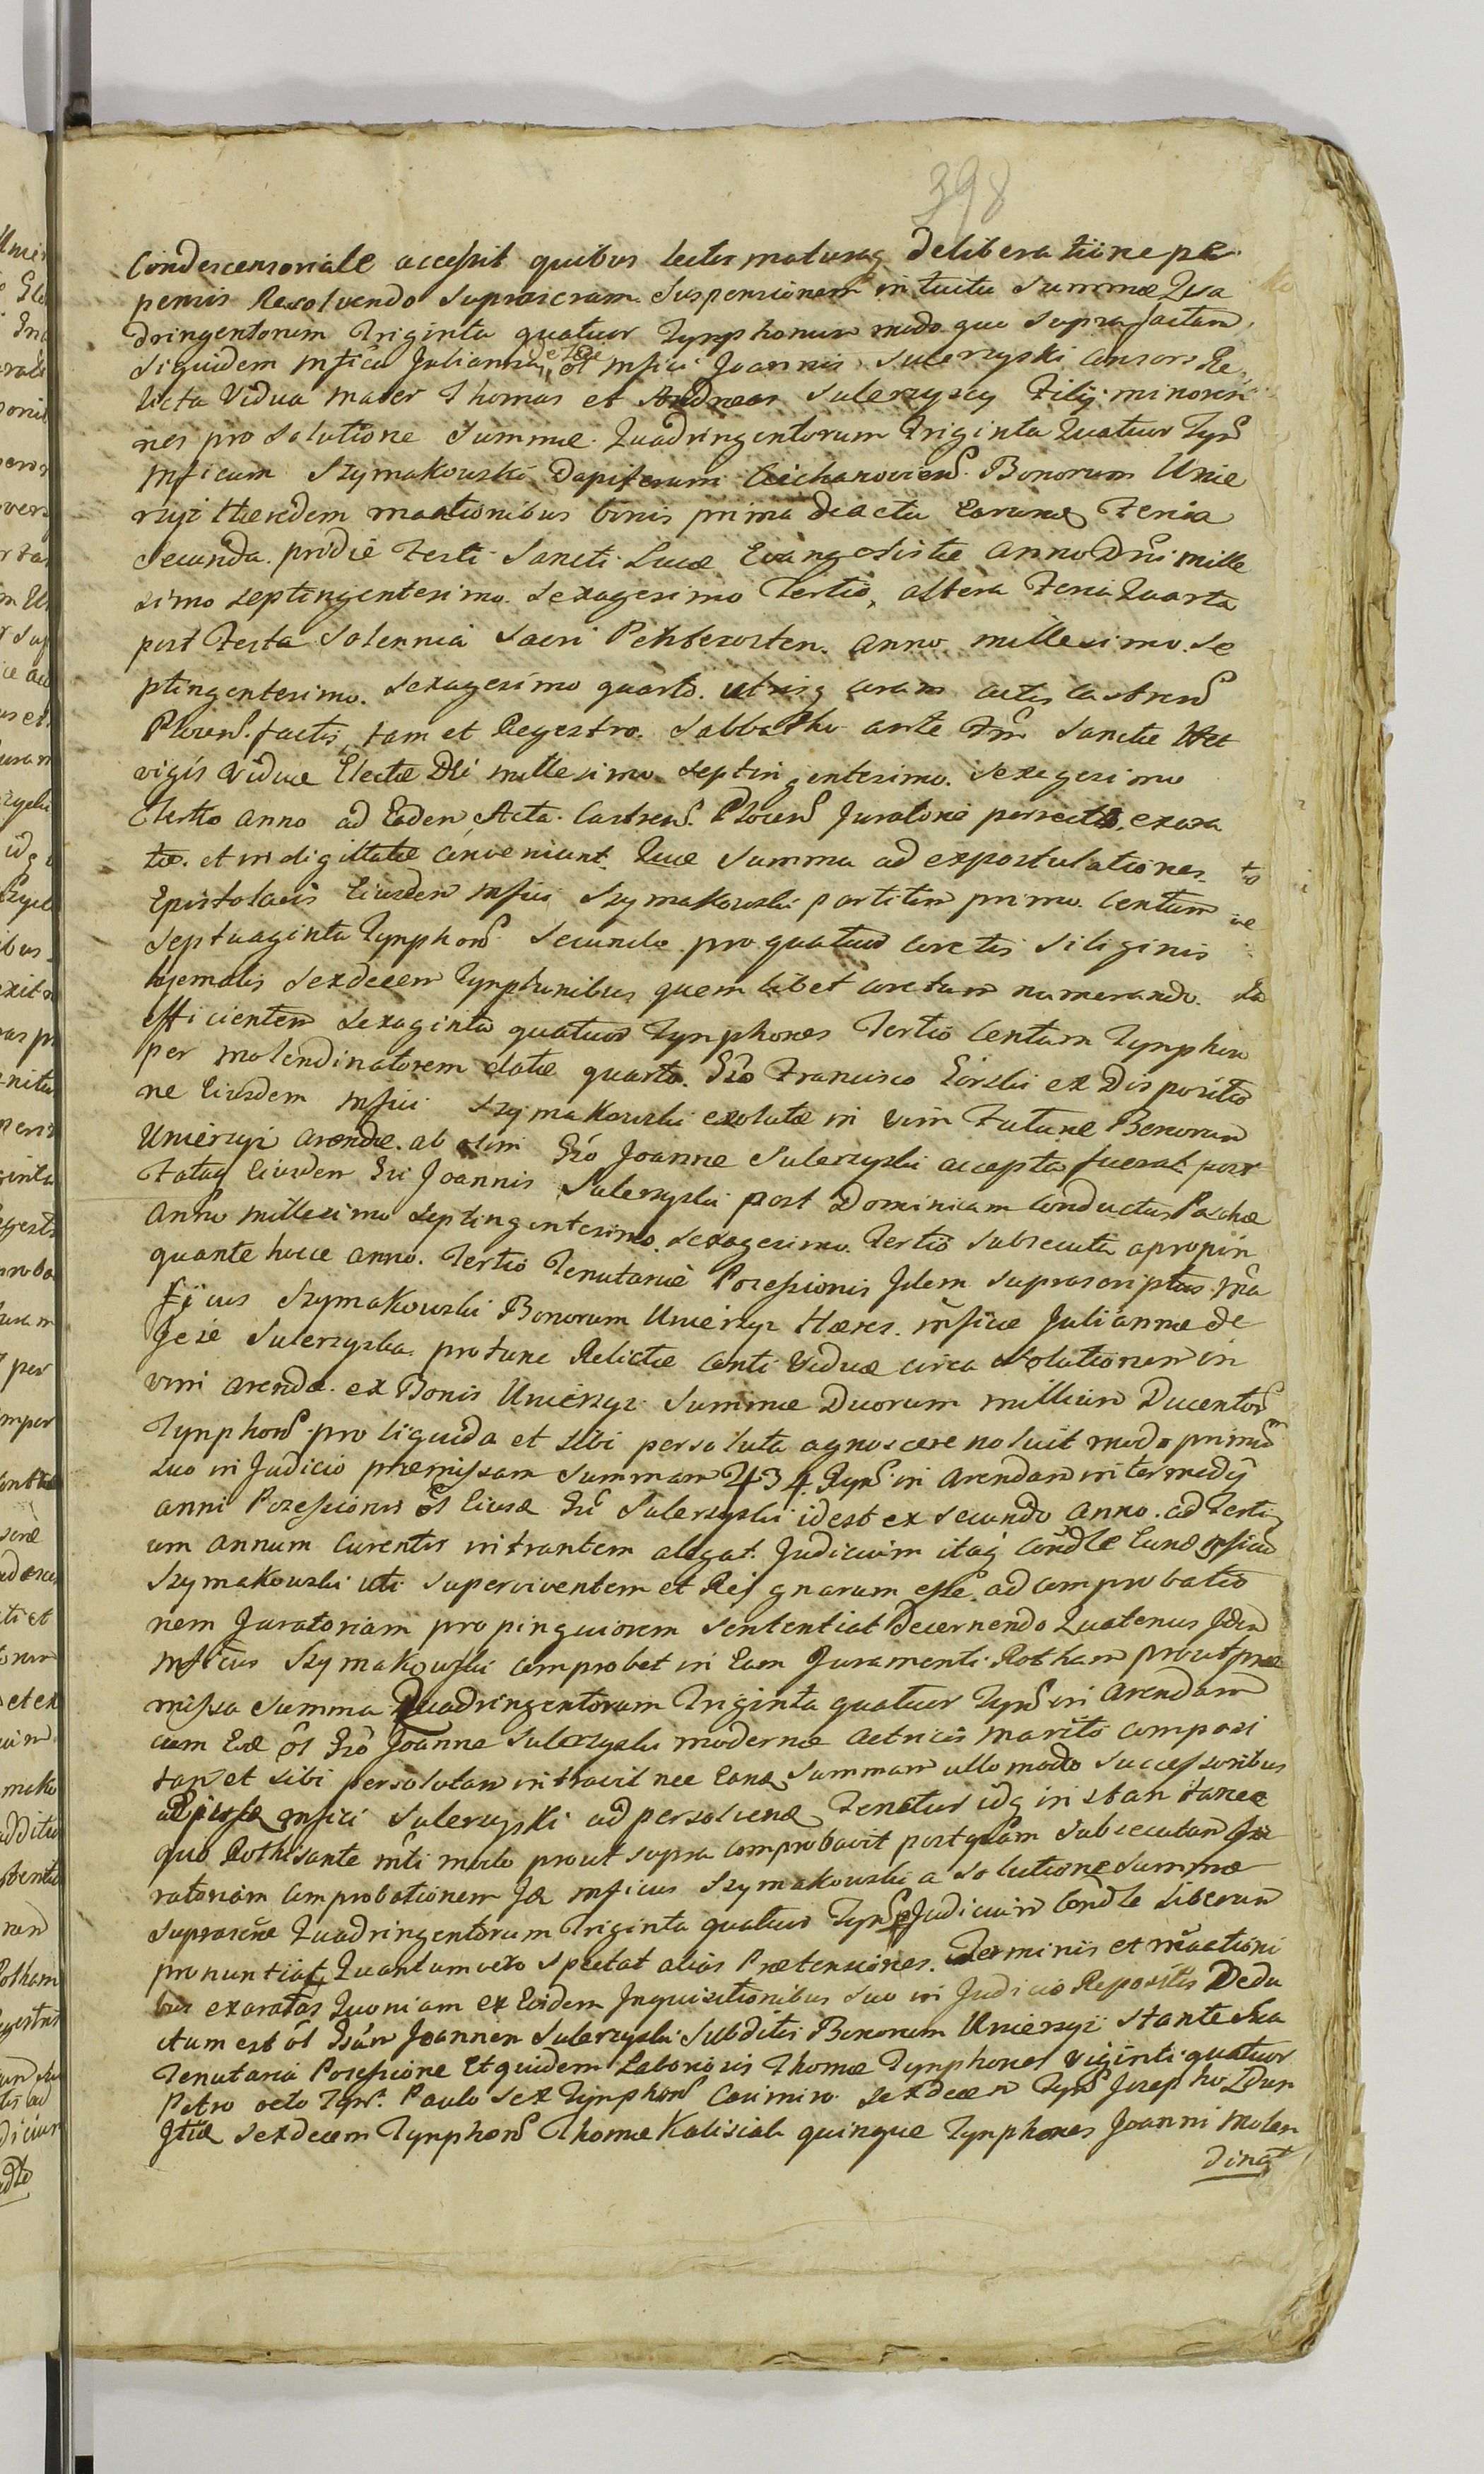 398
Condescensoriale accessit quibus lectis maturaq deliberatiine per
pensis Resolvendo suprascram suspensionem intuitu summæ Qua
dringentorum Triginta quatuor Tynphonum modo quo supra factam
siquidem Mfica Julianna ol Mfici Joannis Sulerzyski consors Re
licta Vidua mater Thomas et Andreas Sulerzyscy Filij minoren
nes pro solutione summæ Quadringentorum Triginta Quatuor Tyn
Mficum Szymakowski Dapiferum Ciechanoviens Bonorum Unie
rzyż Hæredem mœtionibus binis prima de actu Earund Feria
secunda pridie Festi Sancti Lucæ Evangelistæ Anno Dni mille
simo septingentesimo sexagesimo Tertio, altera Feria Quarta
post Festa Solennia Sacri Penthecosten anno millesimo se
ptingentesimo sexagesimo quarto utrisq coram actis castrens
Plocens factis, tam et Regestro Sabbatho ante Fm Sanctæ Hed
vigis Viduæ Electæ Dei millesimo septingentesimo sexagesimo
Tertio anno ad Eadem Acta Castrens Plocens Juratorie porrecto, exara
tæ et indigittatæ conveniunt Quæ summa ad expostulationes
Epistolares Eiusdem Mfici Szymakowski partitim primo Centum
septuaginta Tynphons secundo pro quatuor coretis siliginis
hyemalis sexdecem Tynphonibus quemlibet coretum numerando
efficientem sexaginta quatuor Tynphones Tertio Centum Tynphon
per molendinatorem datæ quarto Gso Francisco Gorski ex Dispositio
ne Eiusdem Mfici Szymakowski exolutæ in vim Futuræ Bonorum
Unierzyż arendæ ab olim Gso Joanne Sulerzyski accepta fuerat post
Fataq Eiusdem Gsi Joannis Sulerzyski post Dominicam Conductus Paschæ
Anno millesimo septingentesimo sexagesimo Tertio subsecuta apropin
quante hocce anno Tertio Tenutariæ Possessionis Idem suprascriptus Ma
fijcus Szymakowski Bonorum Unierzyż Hæres Mficæ Juliannæ de
Jeże Sulerzyska protunc Relictæ Viduæ circa solutionem in
vim arendæ ex Bonis Unierzyż summæ Duorum millium Ducentor
Tynphons pro liquida et sibi persoluta agnoscere noluit modo primum
suo in Judicio præmissam summam 434 Tyns in arendam intermedij
anni Possessionis ol Eiusd Gsi Sulerzyski idest ex secundo anno ad Terti
um annum Curentis intrantem alegat Judicium itaq Condle Eund Mficum
Szymakowski uti superviventem et Rei gnarum esse ad comprobatio
nem Juratoriam propinquiorem sententiat Decernendo Quatenus Idem
Mficus Szymakowski comprobet in Eam Juramenti Rotham prout præ
missa summa Quadringentorum Triginta quatuor Tyns in arendam
cum Eod ol Gso Joanne Sulerzyski modernæ actricis marito composi
tam et sibi persolutam intravit nec Eand summam ullo modo successoribus
Mfici Sulerzyski ad persolvend Tenetur idq in instan
quo Rothisante mti modo prout supra comprobavit post quam subsecutam Ju
ratoriam comprobationem Id Mficus Szymakowski a solutione summæ
suprascræ Quadringentorum Triginta quatuor Tyns Judicium Condle Liberum
pronuntiat, Quantum vero spectat alias Prætensiones Terminis et mœtioni
bus exaratas Quoniam ex Eisdem Inquisitionibus suo in Judicio Repositis Dedu
ctum est ol Gsum Joannem Sulerzyski subditis Bonorum Unierzyż stante sua
Tenutaria Possessione Et quidem Laboriosis Thomæ Tynphones viginti quatuor
Petro octo Tyns Paulo sex Tynphons Casimiro sexdecem Tyns Josepho Zdun
sexdecem Tynphons Thomæ Kalisiak quinque Tynphones Joanni Molen
dinat